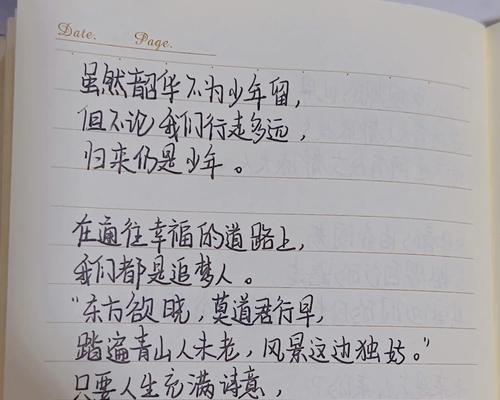 Date. Page.
虽然韶华不为少年留，
但不论我们行走多远，
归来仍是少年。
在通往幸福的道路上，
我们都是追梦人。
“东方欲晓，莫道君行早，
踏遍青山人未老，风景这边独好。”
只要人生充满诗意，